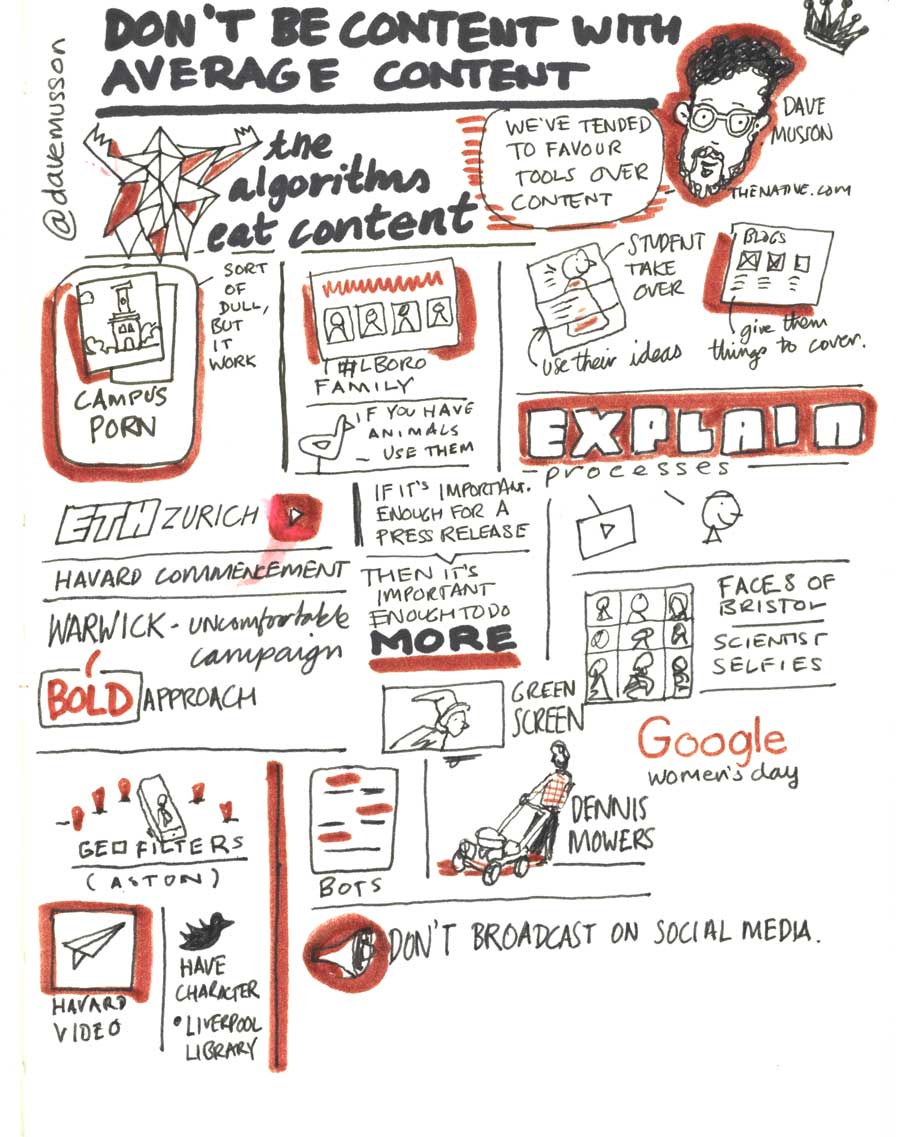 DON'T BE CONTENT WITH
AVERAGE CONTENT
@davemusson
DAVE
MUSSON
THENATIVE.COM
the
algorithms
eat content
WE'VE TENDED
TO FAVOUR
TOOLS OVER
CONTENT
CAMPUS
PORN
SORT
OF
DULL,
BUT
IT
WORK
#LBORO
FAMILY
IF YOU HAVE
ANIMALS
- USE THEM
STUDENT
TAKE
OVER
use their ideas
BLOGS
give them
things to cover.
EXPLAIN
processes
ETH ZURICH
HAVARD COMMENCEMENT
WARWICK - uncomfortable
campaign
BOLD APPROACH
IF IT'S IMPORTANT.
ENOUGH FOR A
PRESS RELEASE
THEN IT'S
IMPORTANT
ENOUGH TO DO
MORE
FACES OF
BRISTOL
SCIENTIST
SELFIES
GREEN
SCREEN
Google
women's day
GEO FILTERS
(ASTON)
BOTS
DENNIS
MOWERS
HAVARD
VIDEO
HAVE
CHARACTER
• LIVERPOOL
LIBRARY
DON'T BROADCAST ON SOCIAL MEDIA.